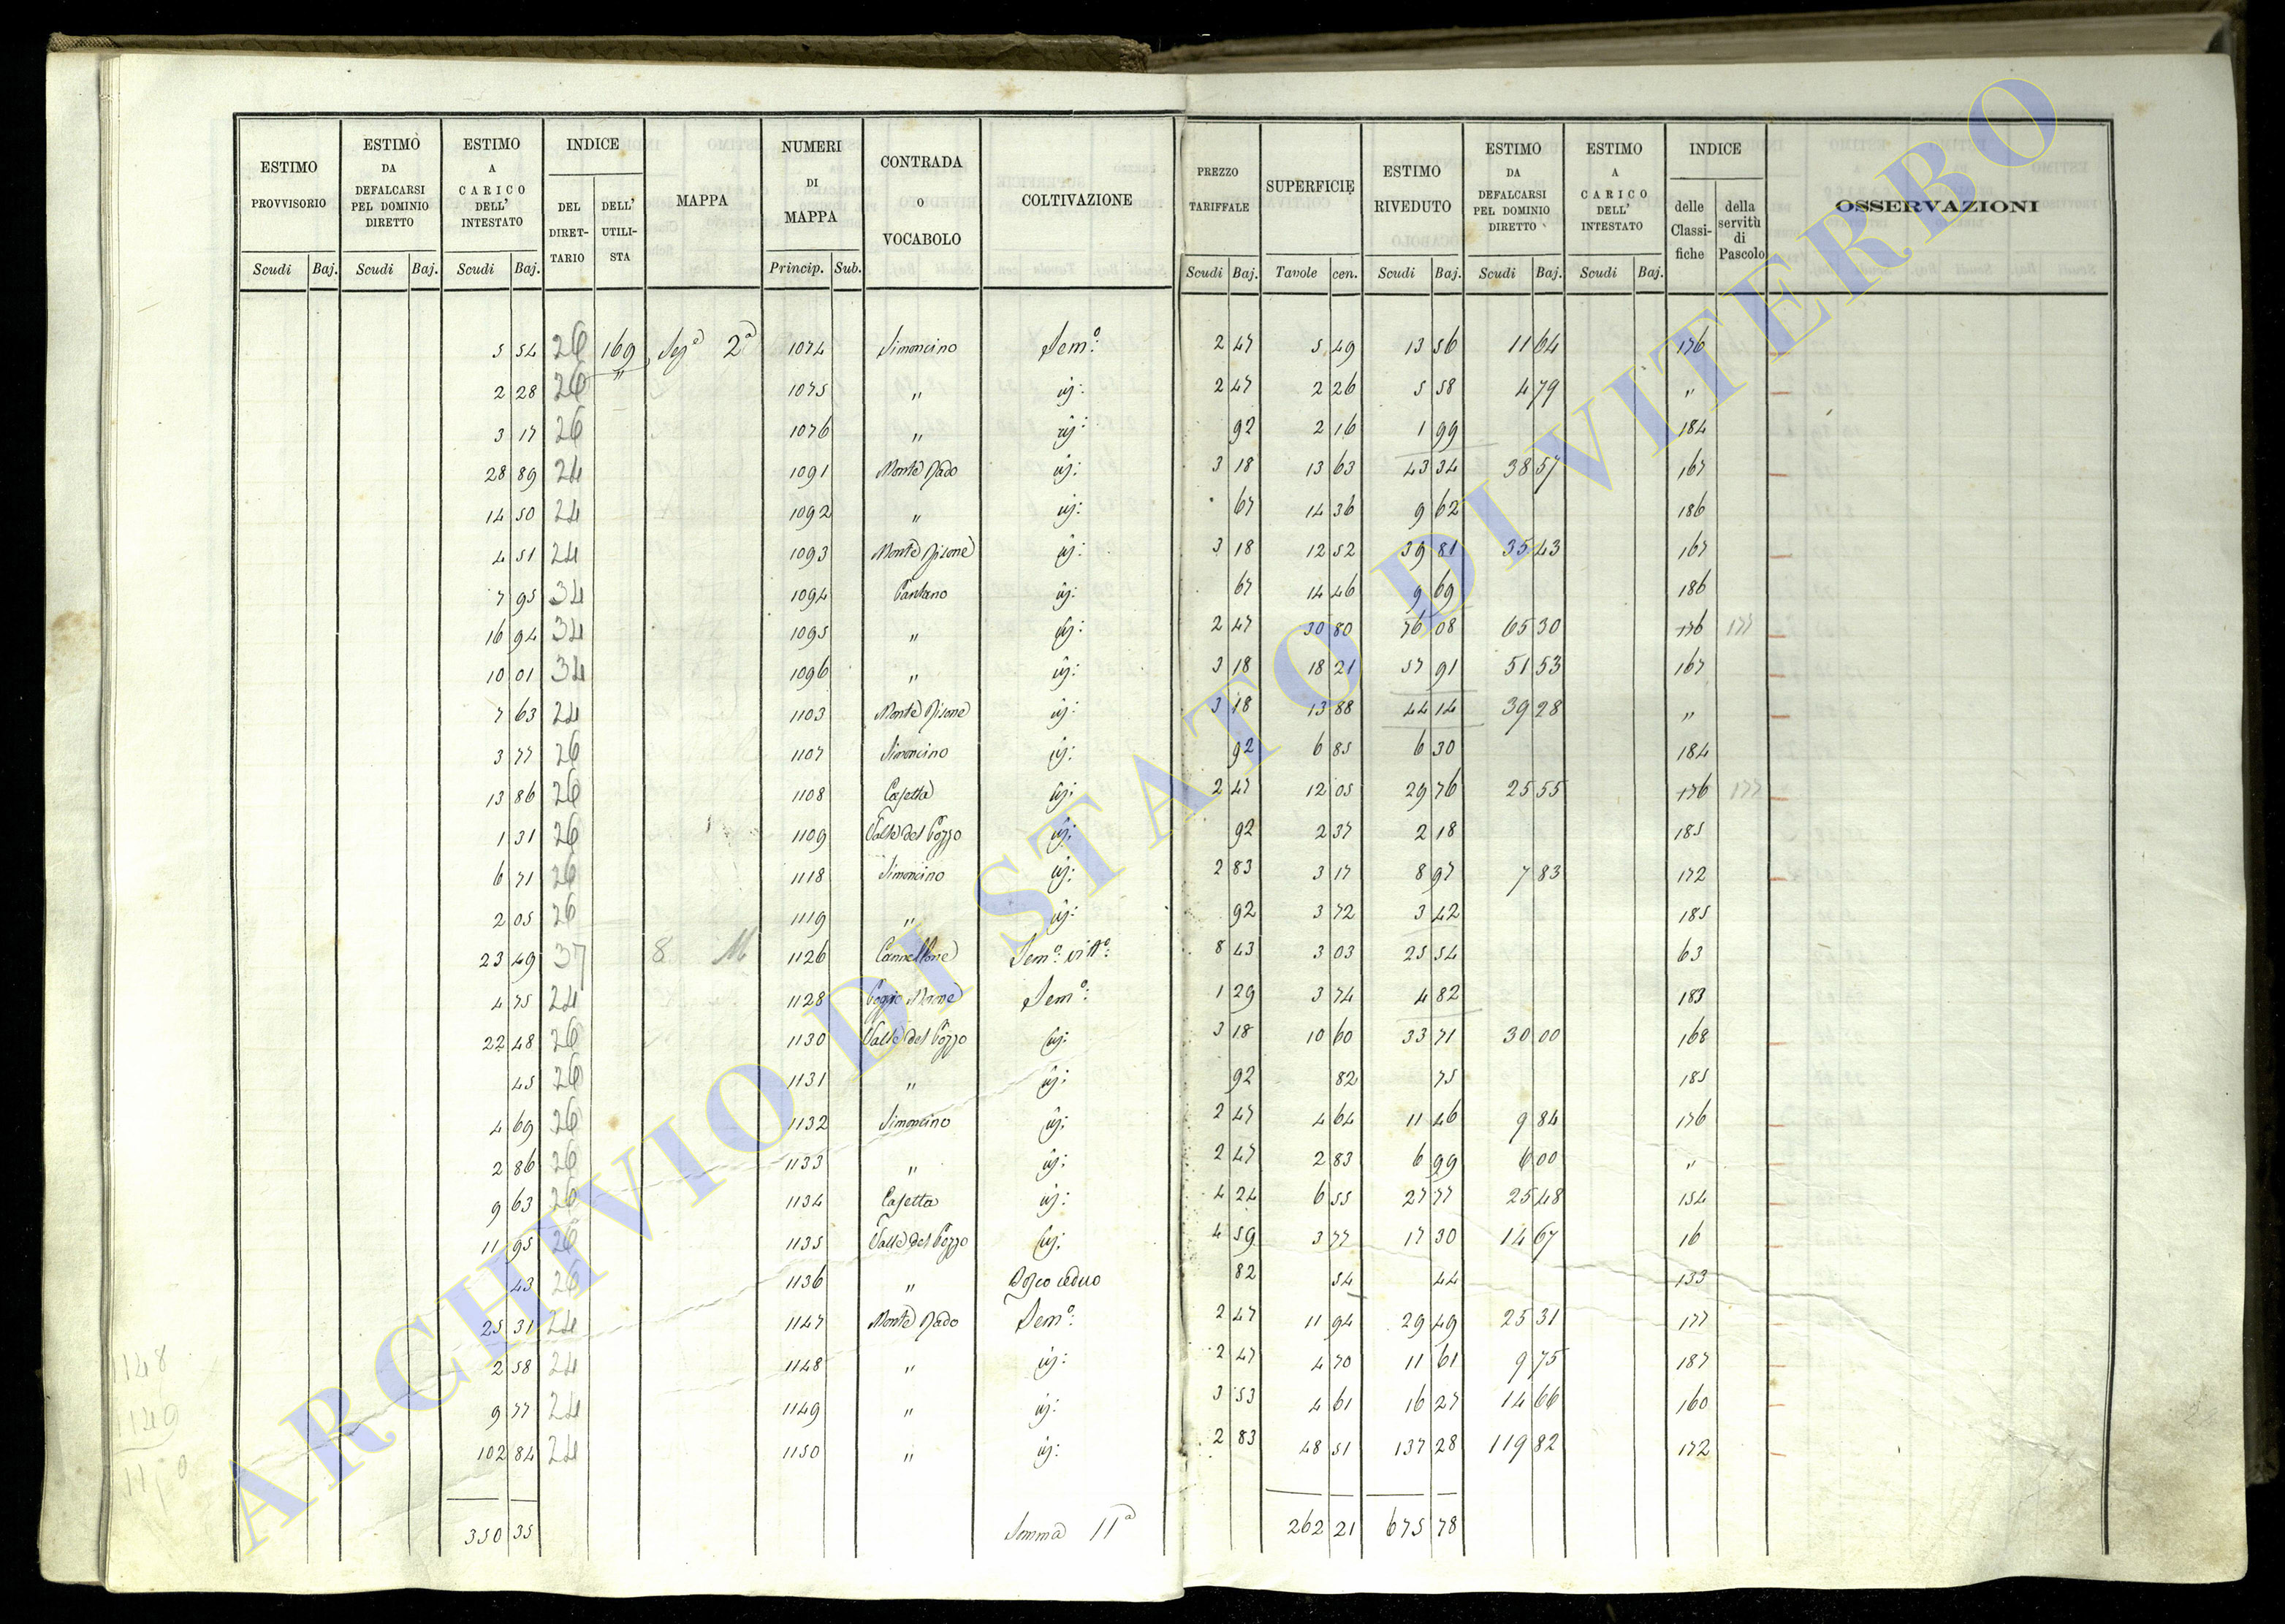 ESTIMO PROVVISORIO | ESTIMO DA DEFALCARSI PEL DOMINIO DIRETTO | ESTIMO A CARICO DELL' INTESTATO | INDICE DEL DIRETTARIO | DELL' UTILISTA | MAPPA | NUMERI DI MAPPA | CONTRADA O VOCABOLO | COLTIVAZIONE | PREZZO TARIFFALE | SUPERFICIE | ESTIMO RIVEDUTO | ESTIMO DA DEFALCARSI PEL DOMINIO DIRETTO | ESTIMO A CARICO DELL' INTESTATO | INDICE delle Classifiche | della servitù di Pascolo | OSSERVAZIONI
Scudi Baj. | Scudi Baj. | Scudi Baj. | Princip. Sub. | Scudi Baj. | Tavole cen. | Scudi Baj. | Scudi Baj. | Scudi Baj.
5 54 26 169 Sez.ª 2ª 1074 Simoncino Sem.º 2 47 5 49 13 56 11 64 176
2 28 26 " 1075 " id: 2 47 2 26 5 58 4 79 "
3 17 26 1076 " id: 92 2 16 1 99 184
28 89 24 1091 Monte Rado id: 3 18 13 63 43 34 38 57 167
14 50 24 1092 " id: 67 14 36 9 62 186
4 51 24 1093 Monte Risone id: 3 18 12 52 39 81 35 43 167
7 95 34 1094 Pantano id: 67 14 46 9 69 186
16 94 34 1095 " id: 2 47 30 80 76 08 65 30 176 177
10 01 34 1096 " id: 3 18 18 21 57 91 51 53 167
7 63 24 1103 Monte Risone id: 3 18 13 88 44 14 39 28 "
3 77 26 1107 Simoncino id: 92 6 85 6 30 184
13 86 26 1108 Casetta id: 2 47 12 05 29 76 25 55 176 177
1 31 26 1109 Valle del Pozzo id: 92 2 37 2 18 185
6 71 26 1118 Simoncino id: 2 83 3 17 8 97 7 83 172
2 05 26 1119 " id: 92 3 72 3 42 185
23 49 37 8 M 1126 Cannellone Sem.º vitt.º 8 43 3 03 25 54 63
4 75 24 1128 Poggio Sem.º 1 29 3 74 4 82 183
22 48 26 1130 Valle del Pozzo id: 3 18 10 60 33 71 30 00 168
45 26 1131 " id: 92 82 75 185
4 69 26 1132 Simoncino id: 2 47 4 64 11 46 9 84 176
2 86 26 1133 " id: 2 47 2 83 6 99 6 00 "
9 63 26 1134 Casetta id: 4 24 6 55 27 77 25 48 154
11 95 26 1135 Valle del Pozzo id: 4 59 3 77 17 30 14 67 16
43 26 1136 " Bosco ceduo 82 54 44 133
25 31 24 1147 Monte Rado Sem.º 2 47 11 94 29 49 25 31 177
2 58 24 1148 " id: 2 47 4 70 11 61 9 75 187
9 77 24 1149 " id: 3 53 4 61 16 27 14 66 160
102 84 24 1150 " id: 2 83 48 51 137 28 119 82 172
350 35 Somma 11ª 262 21 675 78
1148
1149
ARCHIVIO DI STATO DI VITERBO